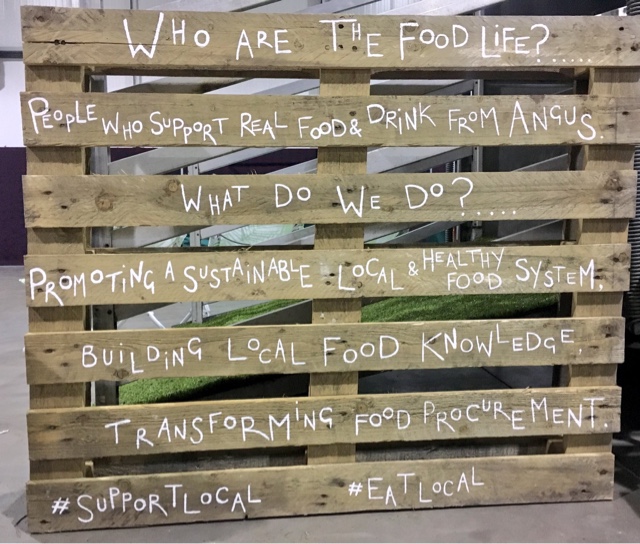 WHO ARE THE FOOD LIFE?.....
PEOPLE WHO SUPPORT REAL FOOD & DRINK FROM ANGUS.
WHAT DO WE DO?.....
PROMOTING A SUSTAINABLE LOCAL & HEALTHY FOOD SYSTEM.
BUILDING LOCAL FOOD KNOWLEDGE.
TRANSFORMING FOOD PROCUREMENT.
#SUPPORTLOCAL #EATLOCAL